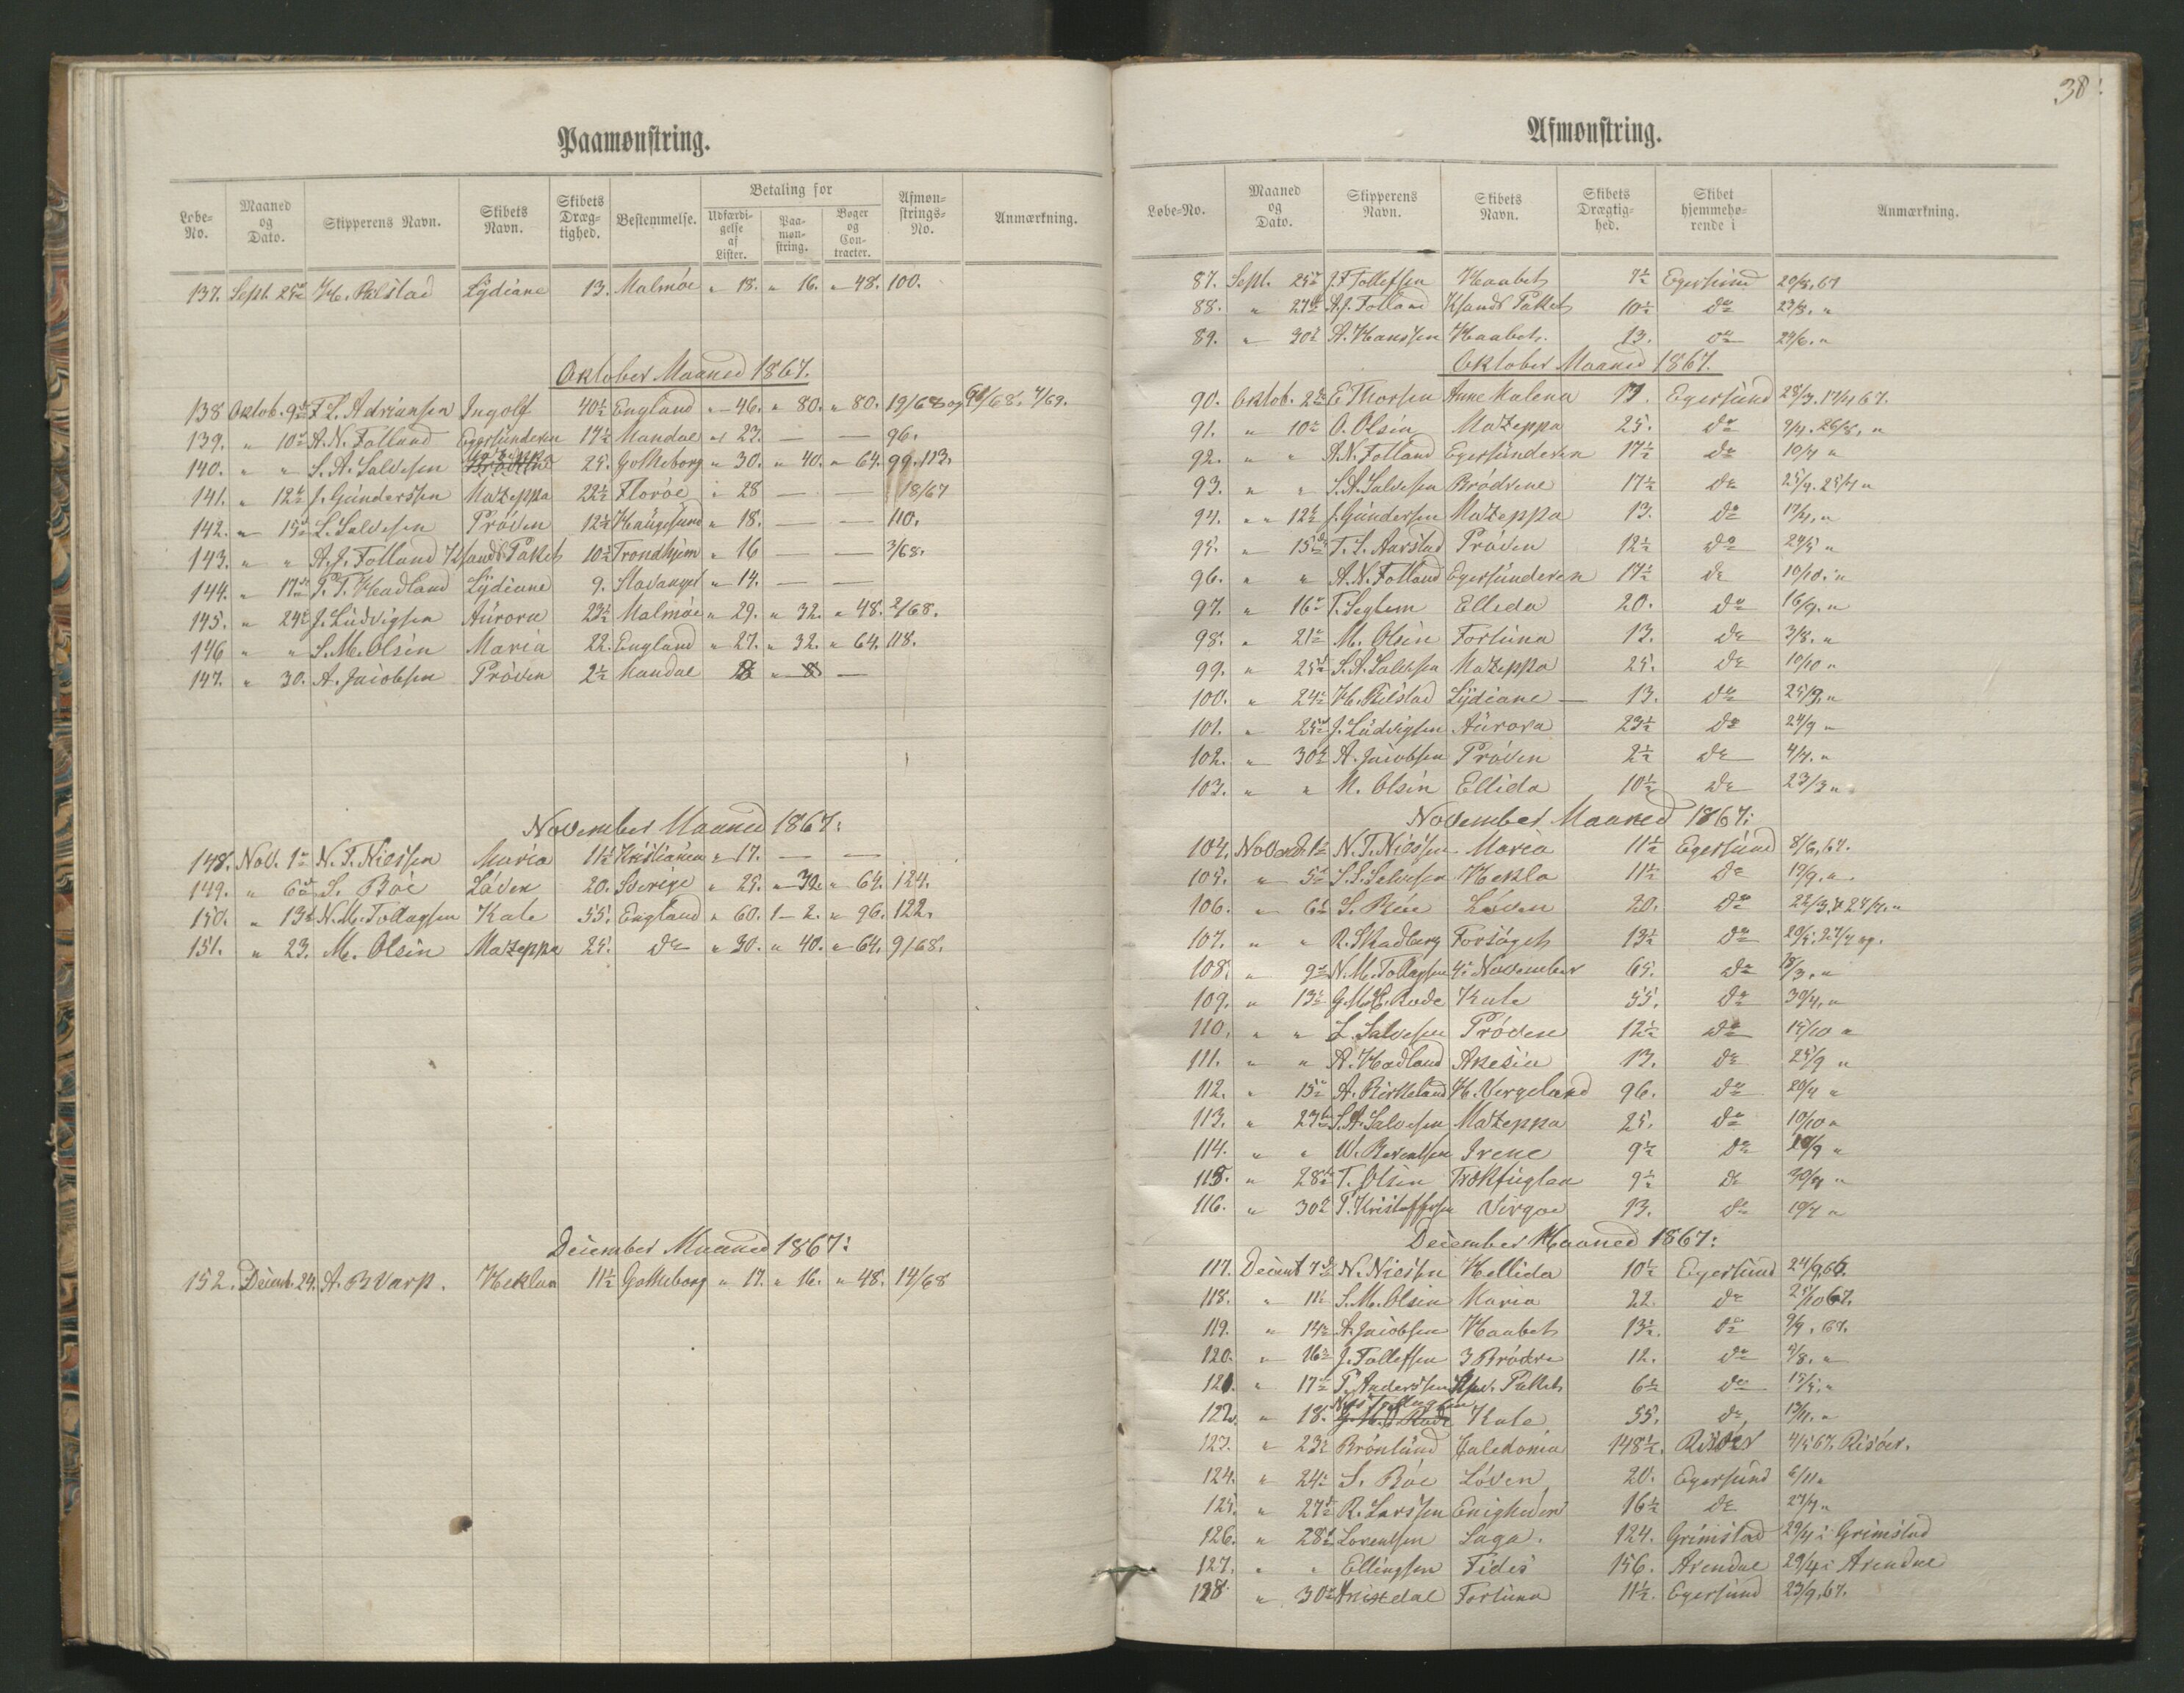 Paamønstring.
Løbe-No. Maaned og Dato. Skipperens Navn. Skibets Navn. Skibets Dræg-tighed. Bestemmelse. Betaling for Udfærdi-gelse af Lister. Paa-møn-string. Bøger og Con-tracter. Afmøn-strings-No. Anmærkning.
137. Sept. 25 H. Pilstad Lydiane 13. Malmöe " 18. " 16. " 48. 100.
Oktober Maaned 1867.
138 Oktob. 9 T. S. Adriansen Ingolf 40½ England " 46. " 80. " 80. 19/68 og 68. 4/69.
139. " 10 A. N. Folland Egersünderen 17½ Mandal " 23. — — 96.
140. " " S. A. Salvesen Mazeppa 25. Gotheborg " 30. " 40. " 64. 99. 113.
141. " 12 J. Gündersen Mazeppa 22½ Florøe " 28 — — 18/67
142. " 15 L. Salvesen Pröven 12½ Haügesund " 18. — — 110.
143. " " A. J. Folland Ksands Paket 10½ Trondhjem " 16 — — 3/68.
144. " 17 P. T. Hadland Lydiane 9. Stavanger " 14. — —
145. " 24 J. Lüdvigsen Aürora 23½ Malmöe " 29. " 32. " 48. 2/68.
146 " " S. M. Olsen Maria 22. England " 27. " 32. " 64. 118.
147. " 30. A. Jacobsen Pröven 2½ Mandal 8 " 8 —
November Maaned 1867:
148. Nov. 1 N. T. Nielsen Maria 11½ Kristiania " 17. — —
149. " 6 S. Böe Löven 20. Sverige " 25. " 32. " 64. 124.
150. " 13 N. M. Tollagsen Kate 55. England " 60. 1 - 2. " 96. 122.
151. " 23. M. Olsen Mazeppa 25. do " 30. " 40. " 64. 9/68.
December Maaned 1867:
152. Decemb. 24. A. B. Varp. Heklaa 11½ Gotheborg " 17. " 16. " 48. 14/68
38.
Afmønstring.
Løbe-No. Maaned og Dato. Skipperens Navn. Skibets Navn. Skibets Drægtig-hed. Skibet hjemmehø-rende i Anmærkning.
87. Sept. 25 J. T. Tollefsen Haabet Egersund 20/8. 67
88. " 27 A. J. Folland Ksands Paket 10½ do 23/8. "
89. " 30 A. Hansen Haabet. 13. do 29/6. "
Oktober Maaned 1867.
90. Oktob. 2 E. Thorsen Anne Malena 17. Egersund
91. " 10 O. Olsen Mazeppa 25. do 9/4. 26/8. "
92. " " A. N. Folland Egersünderen 17½ do 10/4 "
93. " " S. A. Salvesen Brödrene 17½ do
94. " " 12 J. Gündersen Mazeppa 13. do 17/4. "
95. " 15 T. S. Aarstad Pröven 12½ do 24/5 "
96. " " A. N. Folland Egersünderen 17½ do 10/10. "
97. " 16 T. Seglem Ellida 20. do 16/9. "
98. " 21 M. Olsen Fortuna 13. do 3/8. "
99. " 25 S. A. Salvesen Mazeppa 25. do 10/10 "
100. " 24 H. Pilstad Lydiane — 13. do 25/9. "
101. " 25 J. Lüdvigsen Aürora 23½ do 24/9 "
102. " 30 A. Jacobsen Pröven 2½ do 4/4. "
103. " " M. Olsen Ellida 10½ do 23/3 "
November Maaned 1867:
104. Novemb. 1 N. T. Nielsen Maria 11½ Egersund 8/6, 67.
105. " 5 S. S. Salvesen Hekla 11½ do 19/9. "
106. " 6 S. Böe Löven 20. do
107. " " R. Skadberg Forsöget 13½ do
108. " 9 N. M. Tollagsen 4e November 65. do 18/3. "
109. " 13 G. M. H. Rode Kate 55. do 30/4. "
110. " " L. Salvesen Pröven 12½ do 15/10 "
111. " " A. Hadland Akesia 13. do 25/9 "
112. " 15 A. Birkeland H. Vergeland 96. do 20/4 "
113. " 23 S. A. Salvesen Mazeppa 25. do 10/10 "
114. " " W. Berentsen Irene 9½ do 19/9 "
115. " 28 T. Olsen Trækfuglen 9½ do 30/4 "
116. " 30 T. Kristoffersen Virgoe 13. do 19/4 "
December Maaned 1867:
117. Decemb 7 N. Nielsen Hellida 10½ Egersund 24/9. 66.
118. " 11 S. M. Olsen Maria 22. do 25/10 67.
119. " 14 A. Jacobsen Haabet 13½. do 9/9. 67.
120. " 16 J. Tollefsen 3 Brödre 12. do 4/8. "
121. " 17 P. Andersen Paket 6½ do 15/5. "
122. " 18. Nils Tollagsen Kate 55. do 13/11. "
123. " 23 Brönlund Caledonia 148½. Risöer 4/5 67. Risöer.
124. " 24 S. Böe Löven 20. Egersund 6/11 "
125. " 27 R. Larssen Enigheden 16½ do 27/4 "
126. " 28 Lorentsen Saga. 124. Grimstad 29/4 i Grimstad
127. " " Ellingsen Fides 156. Arendal 29/4 i Arendal
128 " 30 Fortuna 11½. Egersund 23/9. 67.